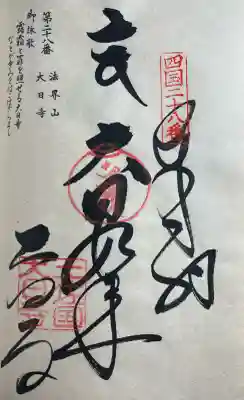 四国二十八番
奉納
大日如来
大日寺
第二十八番 法界山
大日寺
御詠歌
露霜と罪を照せる大日寺
などか歩みをはこばざらまし